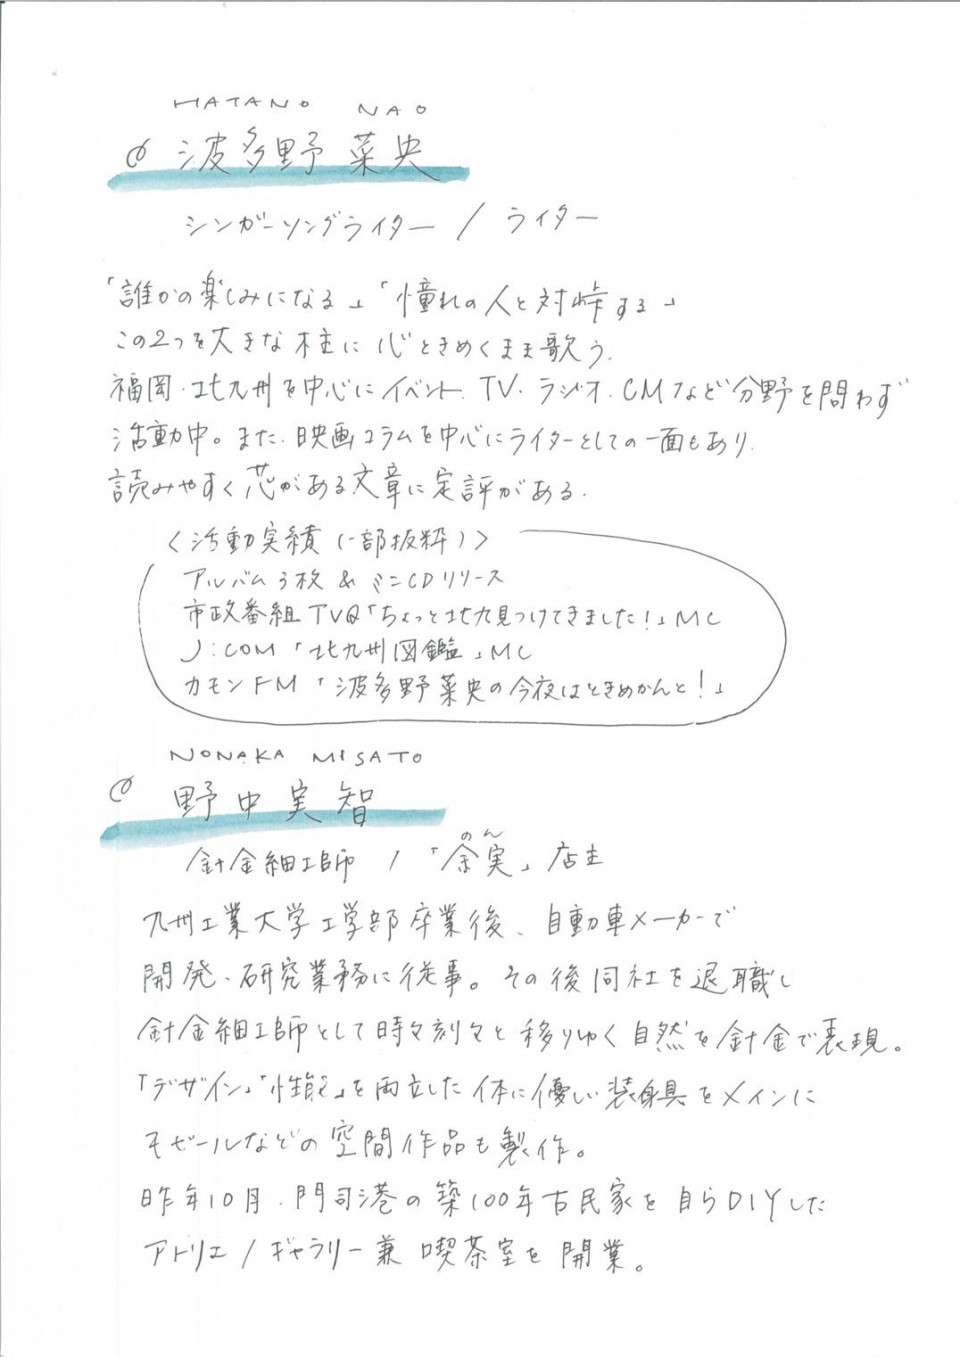 HATANO NAO
波多野菜央
シンガーソングライター / ライター
「誰かの楽しみになる」「憧れの人と対峙する」
この2つを大きな柱に心ときめくまま歌う.
福岡・北九州を中心にイベント. TV. ラジオ. CMなど分野を問わず
活動中。また、映画コラムを中心にライターとしての一面もあり.
読みやすく芯がある文章に定評がある.
<活動実績(一部抜粋)>
アルバム3枚 & ミニCDリリース
市政番組 TVQ「ちょっと北九見つけてきました!」MC
J:COM「北九州図鑑」MC
カモンFM「波多野菜央の今夜はときめかんと!」
NONAKA MISATO
野中実智
のん
針金細工師 / 「余実」店主
九州工業大学工学部卒業後、自動車メーカーで
開発・研究業務に従事。その後同社を退職し
針金細工師として時々刻々と移りゆく自然を針金で表現。
「デザイン」「性能」を両立した体に優しい装身具をメインに
モビールなどの空間作品も製作。
昨年10月、門司港の築100年古民家を自らDIYした
アトリエ / ギャラリー兼喫茶室を開業。